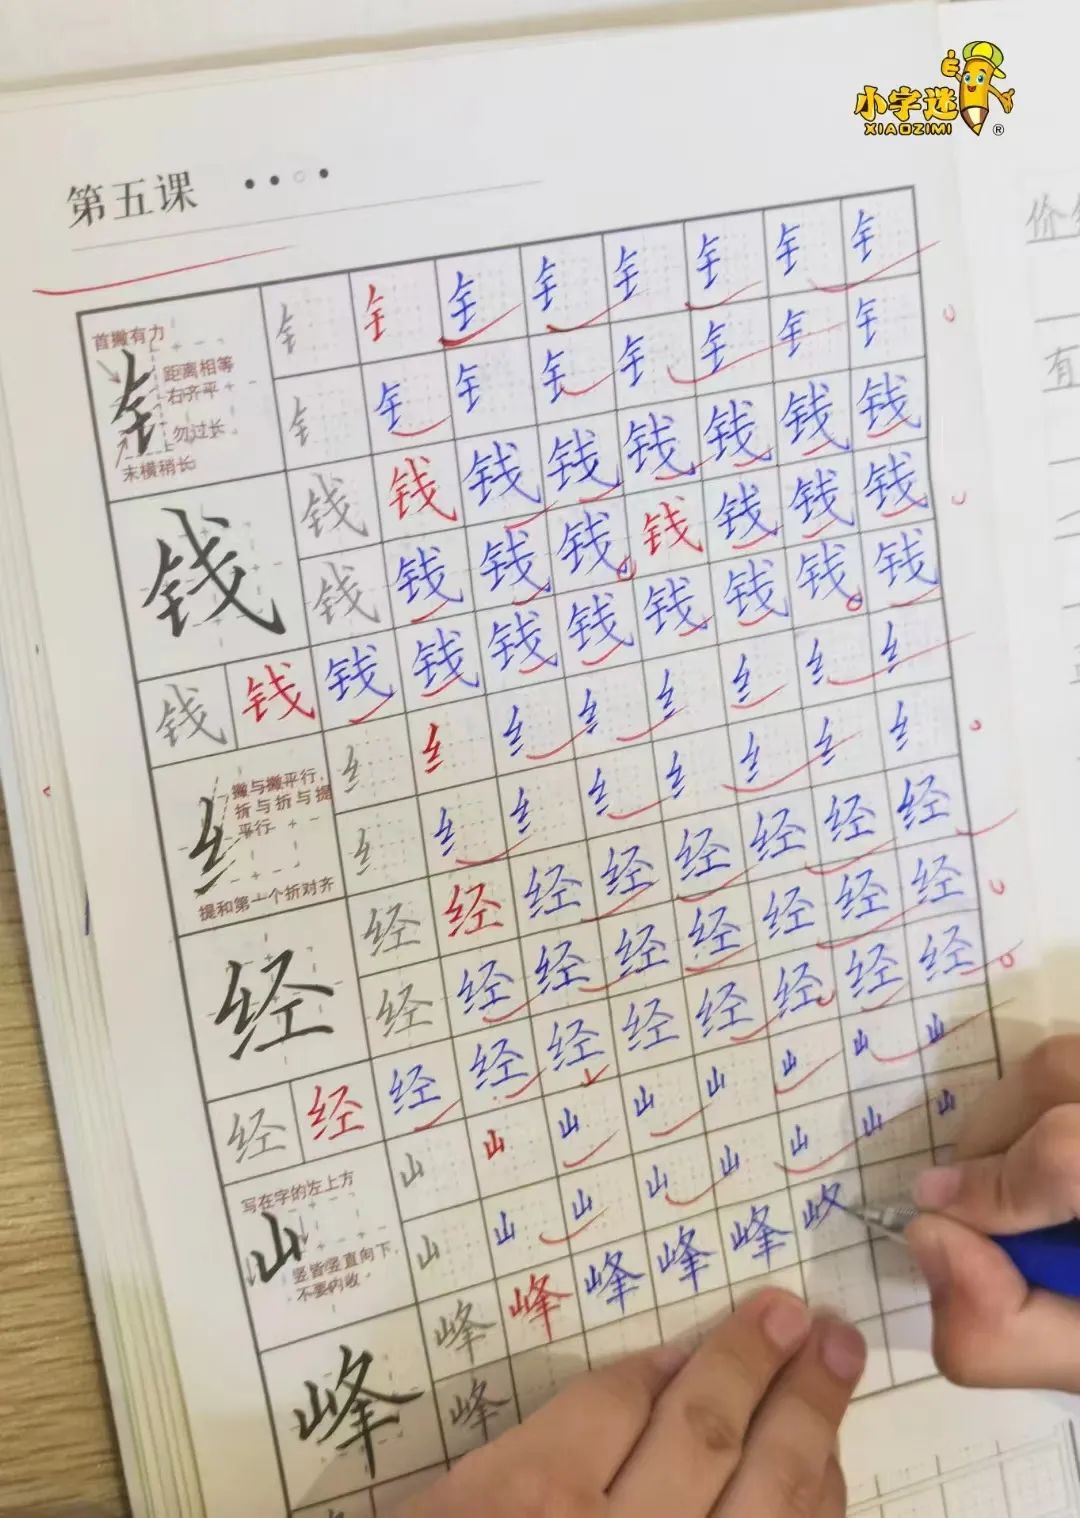 小字迷
XIAOZIMI
®
第五课
首撇有力
钅
距离相等
右齐平
勿过长
末横稍长
钅钅钅钅钅钅钅钅
钅钅钅钅钅钅钅钅
钱
钱钱钱钱钱钱钱钱
钱钱钱钱钱钱钱钱
钱钱钱钱钱钱钱钱钱钱
纟
撇与撇平行,
折与折与提
平行
提和第一个折对齐
纟纟纟纟纟纟纟纟
纟纟纟纟纟纟纟纟
经
经经经经经经经经
经经经经经经经经
经经经经经经经经经经
写在字的左上方
山
竖皆竖直向下,
不要内收
山山山山山山山山
山山山山山山山山
峰
峰峰峰峰峰
峰
价
有